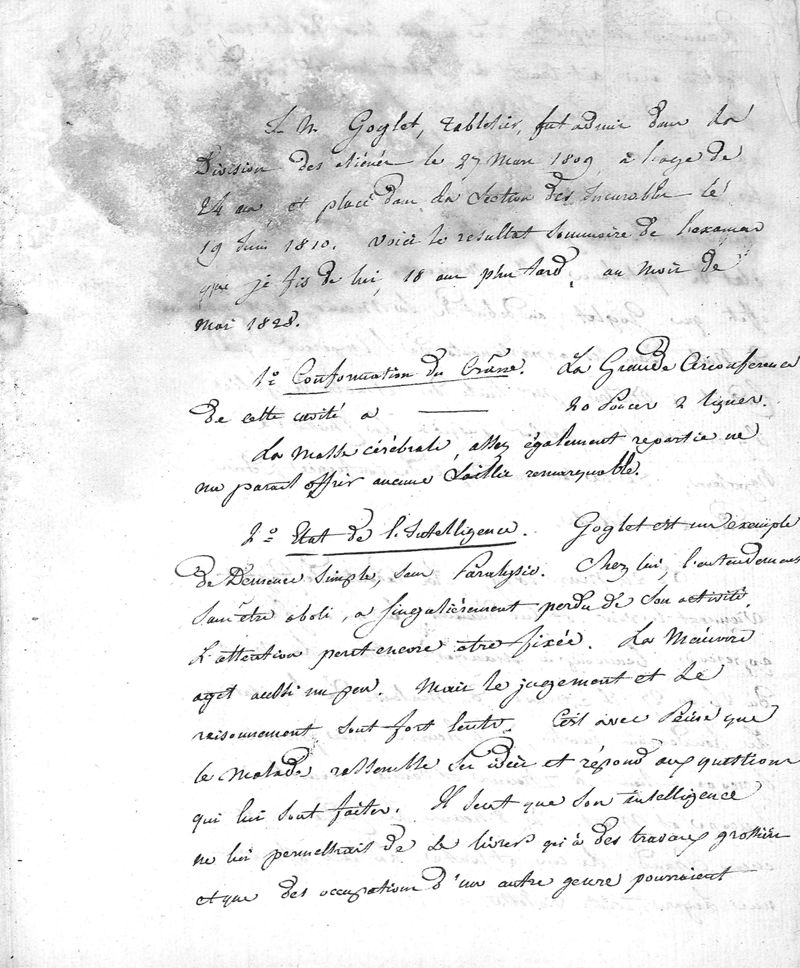 Le N. Goglet, tabletier, fut admis dans la
Division des aliénés le 27 Mars 1809, à l'age de
24 ans, et placé dans la Section des Incurables le
19 Juin 1810. Voici le resultat sommaire de l'examen
que je fis de lui, 18 ans plus tard, au mois de
Mai 1828.
1º Conformation du Crâne. La Grande Circonference
de cette cavité a —— 20 Pouces 2 lignes.
La Masse cérébrale, assez également repartie ne
me parait offrir aucune Saillie remarquable.
2º Etat de l'Intelligence. Goglet est un exemple
de Demence simple, sans Paralysie. Chez lui, l'entendement
sans être aboli, a singulièrement perdu de son activité.
L'attention peut encore etre fixée. La Mémoire
agit aussi un peu. Mais le jugement et le
raisonnement sont fort lents. C'est avec Peine que
le Malade rassemble ses idées et répond aux questions
qui lui sont faites. Il sent que son intelligence
ne lui permettrait de se livrer qu'à des travaux grossiers
et que des occupations d'un autre genre pourraient